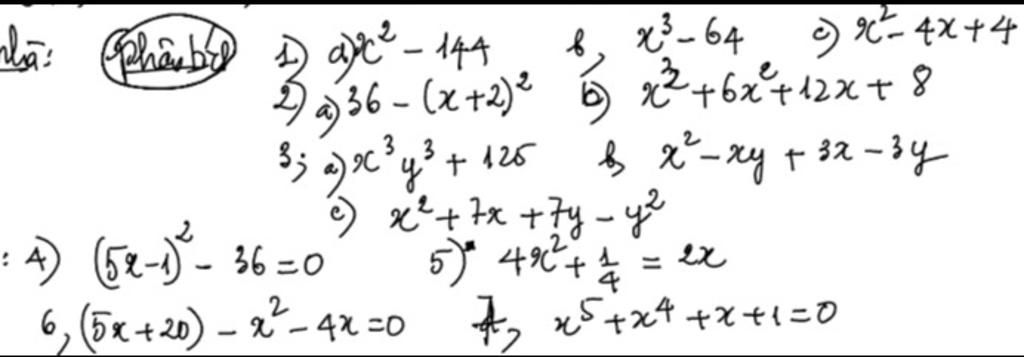 nhã: Phân bổ 1) a) x² - 144 b, x³ - 64 c) x² - 4x + 4
2) a) 36 - (x+2)² b) x³ + 6x² + 12x + 8
3; a) x³y³ + 125 b, x² - xy + 3x - 3y
c) x² + 7x + 7y - y²
: 4) (5x-1)² - 36 = 0 5) 4x² + 1/4 = 2x
6, (5x+20) - x² - 4x = 0 7, x⁵ + x⁴ + x + 1 = 0